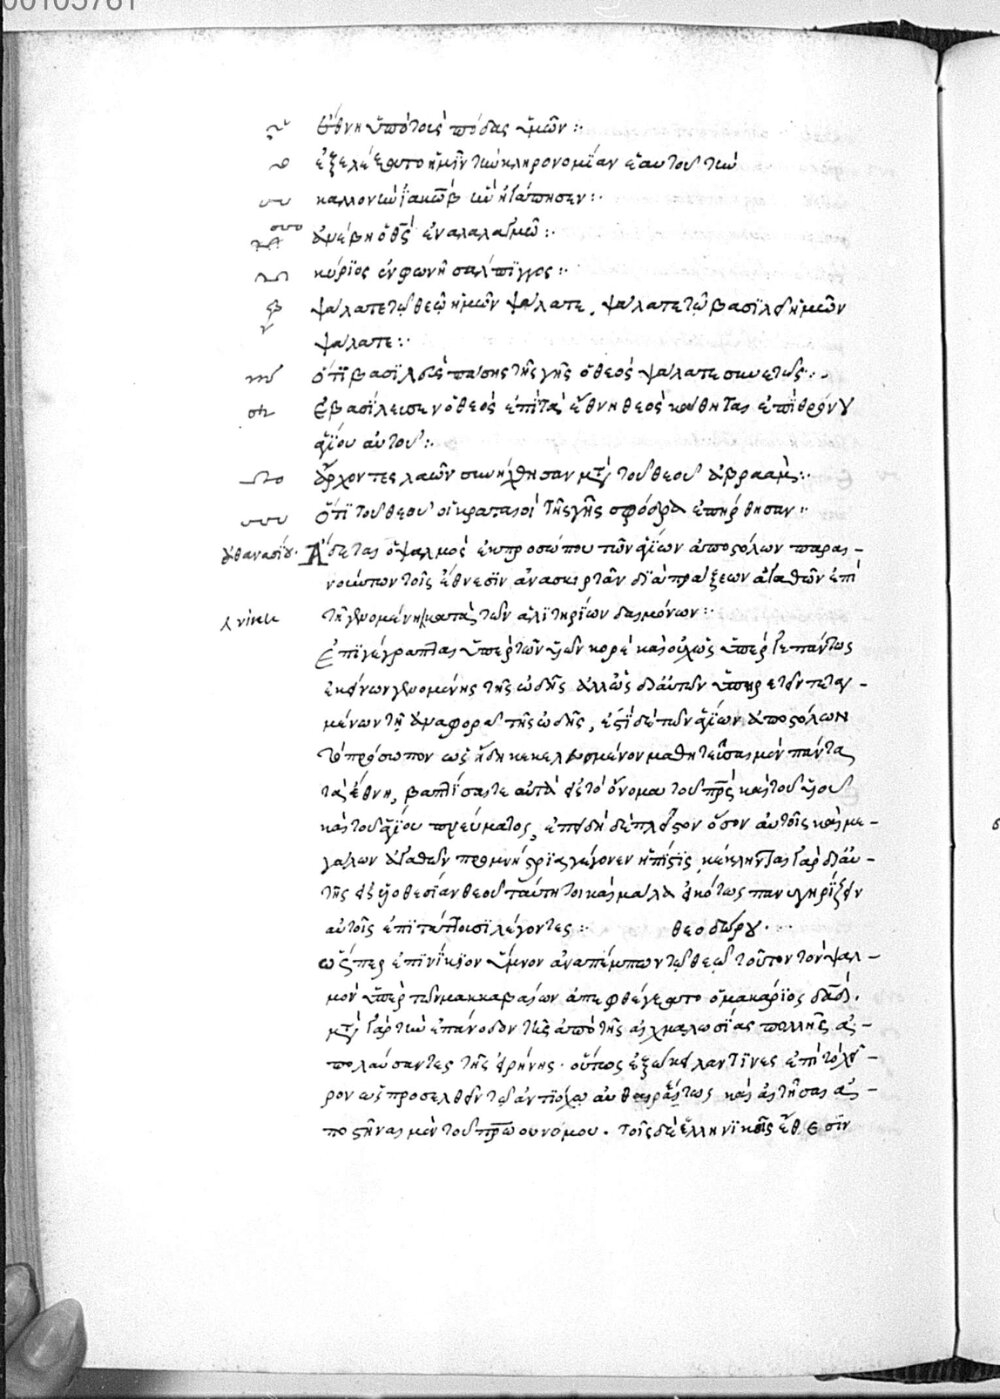 00105761
ἔθνη ὑπὸ τοὺς πόδας ἡμῶν :
ἐξελέξατο ἡμῖν τὴν κληρονομίαν ἑαυτοῦ τὴν
καλλονὴν ἰακὼβ ἣν ἠγάπησεν :
ἀνέβη ὁ θς ἐν ἀλαλαγμῶ :
κύριος ἐν φωνῆ σάλπιγγος :
ψάλατε τῷ θεῷ ἡμῶν ψάλατε, ψάλατε τῷ βασιλεῖ ἡμῶν
ψάλατε :
ὅτι βασιλεὺς πάσης τῆς γῆς ὁ θεὸς ψάλατε συνετῶς :
ἐβασίλευσεν ὁ θεὸς ἐπὶ τὰ ἔθνη θεὸς κάθηται ἐπὶ θρόνου
ἁγίου αὐτοῦ :
ἄρχοντες λαῶν συνήχθησαν μετὰ τοῦ θεοῦ ἀβραάμ :
ὅτι τοῦ θεοῦ οἱ κραταιοὶ τῆς γῆς σφόδρα ἐπήρθησαν :
ἀθανασίου. Ἄδεται ὁ ψαλμὸς ἐκ προσώπου τῶν ἁγίων ἀποστόλων παραι-
νούντων τοῖς ἔθνεσιν ἀνασκιρτᾶν διὰ πράξεων ἀγαθῶν ἐπὶ
τῇ γενομένῃ κατὰ τῶν ἀλιτηρίων δαιμόνων :
Ἐπιγέγραπται ὑπὲρ τῶν υἱῶν κορὲ καὶ οὐχ ὡς ὑπὲρ γε πάντως
ἐκείνων γενομένης τῆς ὠδῆς ἀλλ' ὡς
μένων τὴν ἀναφορὰ τῆς ὠδῆς, ἐστὶ δὲ τῶν ἁγίων ἀποστόλων
τὸ πρόσωπον ὡς ἤδη κεκελευσμένον μαθητεῦσαι μὲν πάντα
τὰ ἔθνη, βαπτίσαι τε αὐτὰ εἰς τὸ ὄνομα τοῦ πρς καὶ τοῦ υἱοῦ
καὶ τοῦ ἁγίου πνεύματος, ἐπειδὴ δὲ πλεῖστον ὅσον αὐτοῖς καὶ με-
γάλων ἀγαθῶν προμνήστρια γέγονεν ἡ πίστις, κέκληνται γὰρ δι' αὐ-
τῆς εἰς υἱοθεσίαν θεοῦ ταύτῃ τοι καὶ μάλα εἰκότως πανηγυρίζειν
αὐτοῖς ἐπιτάττουσι λέγοντες : θεοδώρου.
ὥσπερ ἐπινίκιον ὕμνον ἀναπέμπων τῷ θεῷ τοῦτον τὸν ψαλ-
μὸν ὑπὲρ τῶν μακκαβαίων ἀπεφθέγξατο ὁ μακάριος δαδ.
μετὰ γὰρ τὴν ἐπάνοδον τὴν ἀπὸ τῆς αἰχμαλωσίας πολλῆς ἀ-
πολαύσαντες τῆς εἰρήνης. οὕτως ἐξώκειλάν τινες ἐπὶ τὸ χεῖ-
ρον ὡς προσελθεῖν τῷ ἀντιόχῳ αὐθαιρέτως καὶ αἰτῆσαι ἀ-
ποστῆναι μὲν τοῦ πρώου νόμου. τοῖς δὲ ἑλληνικοῖς ἔθεσιν